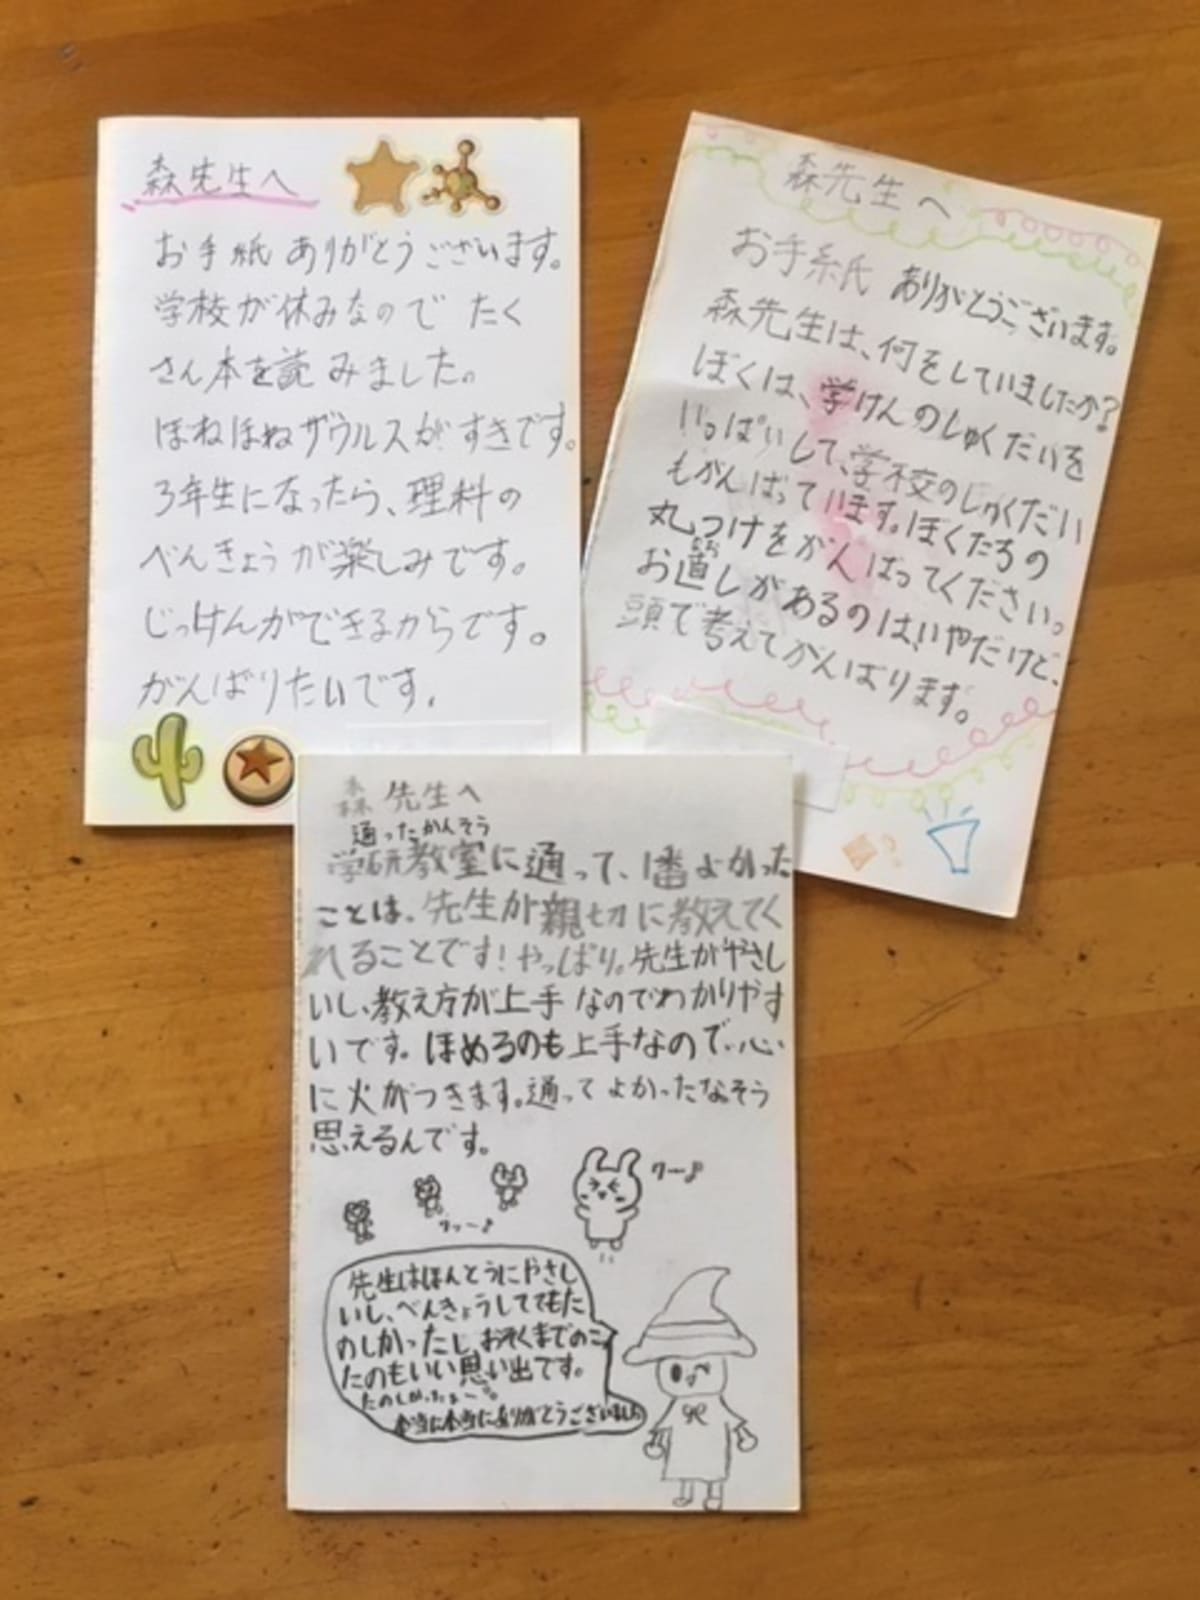 森先生へ
お手紙ありがとうございます。
学校が休みなので たく
さん本を読みました。
ほねほねザウルスがすきです。
3年生になったら、理科の
べんきょうが楽しみです。
じっけんができるからです。
がんばりたいです。
森先生へ
お手紙 ありがとうございます。
森先生は、何をしていましたか?
ぼくは、学けんのしゅくだいを
いっぱいして、学校のしゅくだい
もがんばっています。ぼくたちの
丸つけをがんばってください。
なお
お直しがあるのは、いやだけど、
頭で考えてがんばります。
森 先生へ
通ったかんそう
学研教室に通って、1番よかった
ことは、先生が親切に教えてく
れることです!やっぱり。先生がやさし
いし、教え方が上手なのでわかりやす
いです。ほめるのも上手なので、心
に火がつきます。通ってよかったな。そう
思えるんです。
先生はほんとうにやさし
いし、べんきょうしててもた
のしかったし、おそくまでのこっ
たのもいい思い出です。
本当に本当にありがとうございました